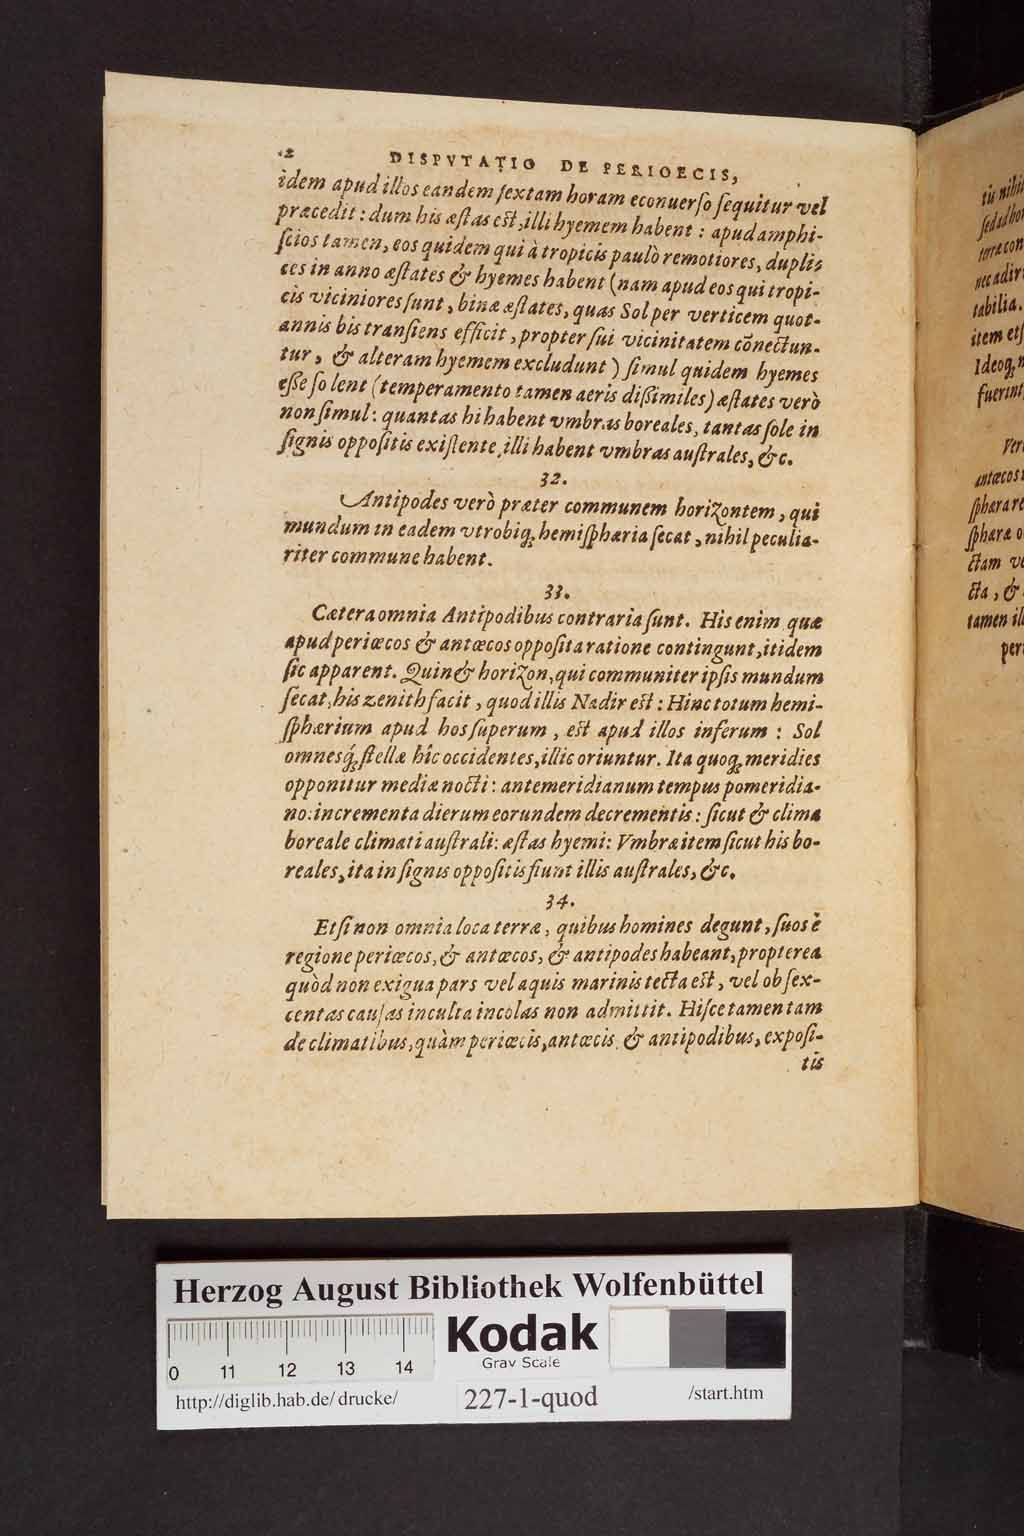 DISPVTATIO DE PERIOECIS,
idem apud illos eandem sextam horam econuerso sequitur vel
præcedit: dum his æstas est, illi hyemem habent: apud amphi-
scios tamen, eos quidem qui à tropicis paulò remotiores, dupli-
ces in anno æstates & hyemes habent (nam apud eos qui tropi-
cis viciniores sunt, binæ æstates, quas Sol per verticem quot-
annis bis transiens efficit, propter sui vicinitatem cõnectun-
tur, & alteram hyemem excludunt) simul quidem hyemes
esse solent (temperamento tamen aeris dissimiles) æstates verò
non simul: quantas hi habent vmbras boreales, tantas sole in
signis oppositis existente, illi habent vmbras australes, &c.
32.
Antipodes verò præter communem horizontem, qui
mundum in eadem vtrobiq; hemisphæria secat, nihil peculia-
riter commune habent.
33.
Cætera omnia Antipodibus contraria sunt. His enim quæ
apud periœcos & antœcos opposita ratione contingunt, itidem
sic apparent. Quin & horizon, qui communiter ipsis mundum
secat, his zenith facit, quod illis Nadir est: Hinc totum hemi-
sphærium apud hos superum, est apud illos inferum: Sol
omnesq́; stellæ hîc occidentes, illic oriuntur. Ita quoq; meridies
opponitur mediæ nocti: antemeridianum tempus pomeridia-
no: incrementa dierum eorundem decrementis: sicut & clima
boreale climati australi: æstas hyemi: Vmbræ item sicut his bo-
reales, ita in signis oppositis fiunt illis australes, &c.
34.
Etsi non omnia loca terræ, quibus homines degunt, suos è
regione periœcos, & antœcos, & antipodes habeant, propterea
quòd non exigua pars vel aquis marinis tecta est, vel ob sex-
centas causas inculta incolas non admittit. Hisce tamen tam
de climatibus, quàm periœcis, antœcis & antipodibus, exposi-
tis
tù nihi
sed ad hor
terræ con
nec adir
tabilia.
item ets
Ideoq; n
fuerint
Ver
antœcos
sphæra re
sphæræ o
ctam ve
cta, &
tamen ill
per
Herzog August Bibliothek Wolfenbüttel
0 11 12 13 14
Kodak
Gray Scale
http://diglib.hab.de/drucke/ 227-1-quod /start.htm